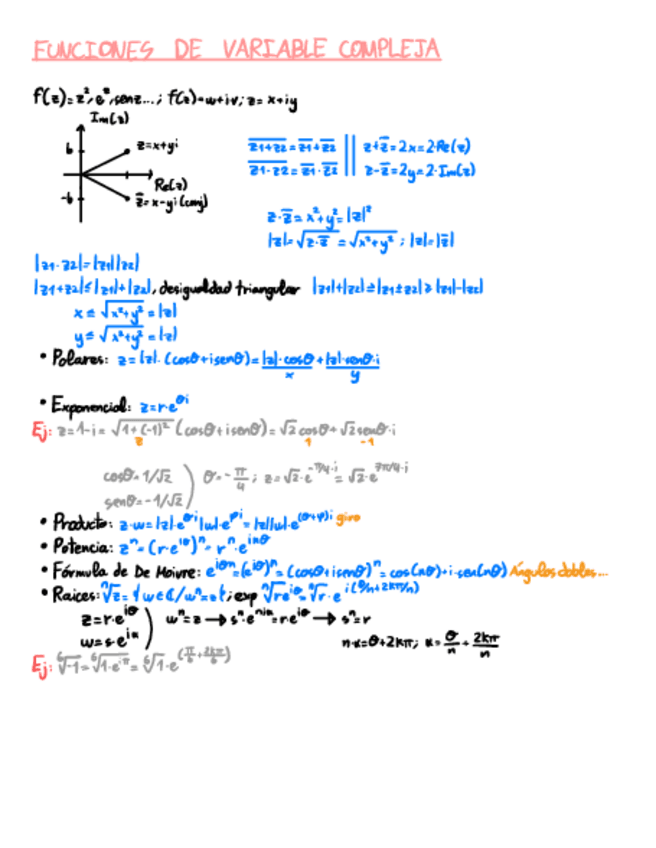 FUNCIONES DE VARIABLE COMPLEJA
f(z)=z², eᶻ, senz...; f(z)=u+iv; z=x+iy
Im(z)
b
z=x+yi
Re(z)
-b
z̅=x-yi (conj)
z̅1̅+̅z̅2̅ = z̅1̅+z̅2̅ || z+z̅=2x=2·Re(z)
z̅1̅·̅z̅2̅ = z̅1̅·z̅2̅ || z-z̅=2y=2·Im(z)
z·z̅=x²+y²=|z|²
|z|=√(z·z̅) = √(x²+y²); |z|=|z̅|
|z1·z2|=|z1||z2|
|z1+z2|≤|z1|+|z2|, desigualdad triangular |z1|+|z2|≥|z1±z2|≥|z1|-|z2|
x≤ √(x²+y²) = |z|
y≤ √(x²+y²) = |z|
• Polares: z=|z|·(cosθ+isenθ)=|z|·cosθ+|z|·senθ·i
x y
• Exponencial: z=r·e^θi
Ej: z=1-i= √(1+(-1)²) (cosθ+isenθ)=√2cosθ+√2senθ·i
2 1 -1
cosθ=1/√2 ) θ=-π/4; z=√2·e^(-π/4·i) = √2·e^(7π/4·i)
senθ=-1/√2
• Producto: z·w=|z|·e^θi|w|·e^φi=|z||w|·e^(θ+φ)i giro
• Potencia: zⁿ=(r·e^iθ)ⁿ=rⁿ·e^inθ
• Fórmula de De Moivre: e^iθn=(e^iθ)ⁿ=(cosθ+isenθ)ⁿ=cos(nθ)+i·sen(nθ) Ángulos dobles...
• Raices: ⁿ√z={w∈ℂ/wⁿ=z}; exp ⁿ√(re^iθ)=ⁿ√r·e^i(θ/n+2kπ/n)
z=r·e^iθ ) wⁿ=z → sⁿ·e^niα=r·e^iθ → sⁿ=r
w=s·e^iα n·α=θ+2kπ; α=θ/n + 2kπ/n
Ej: ⁶√-1=⁶√(1·e^iπ)=⁶√1·e^(π/6+2kπ/6)